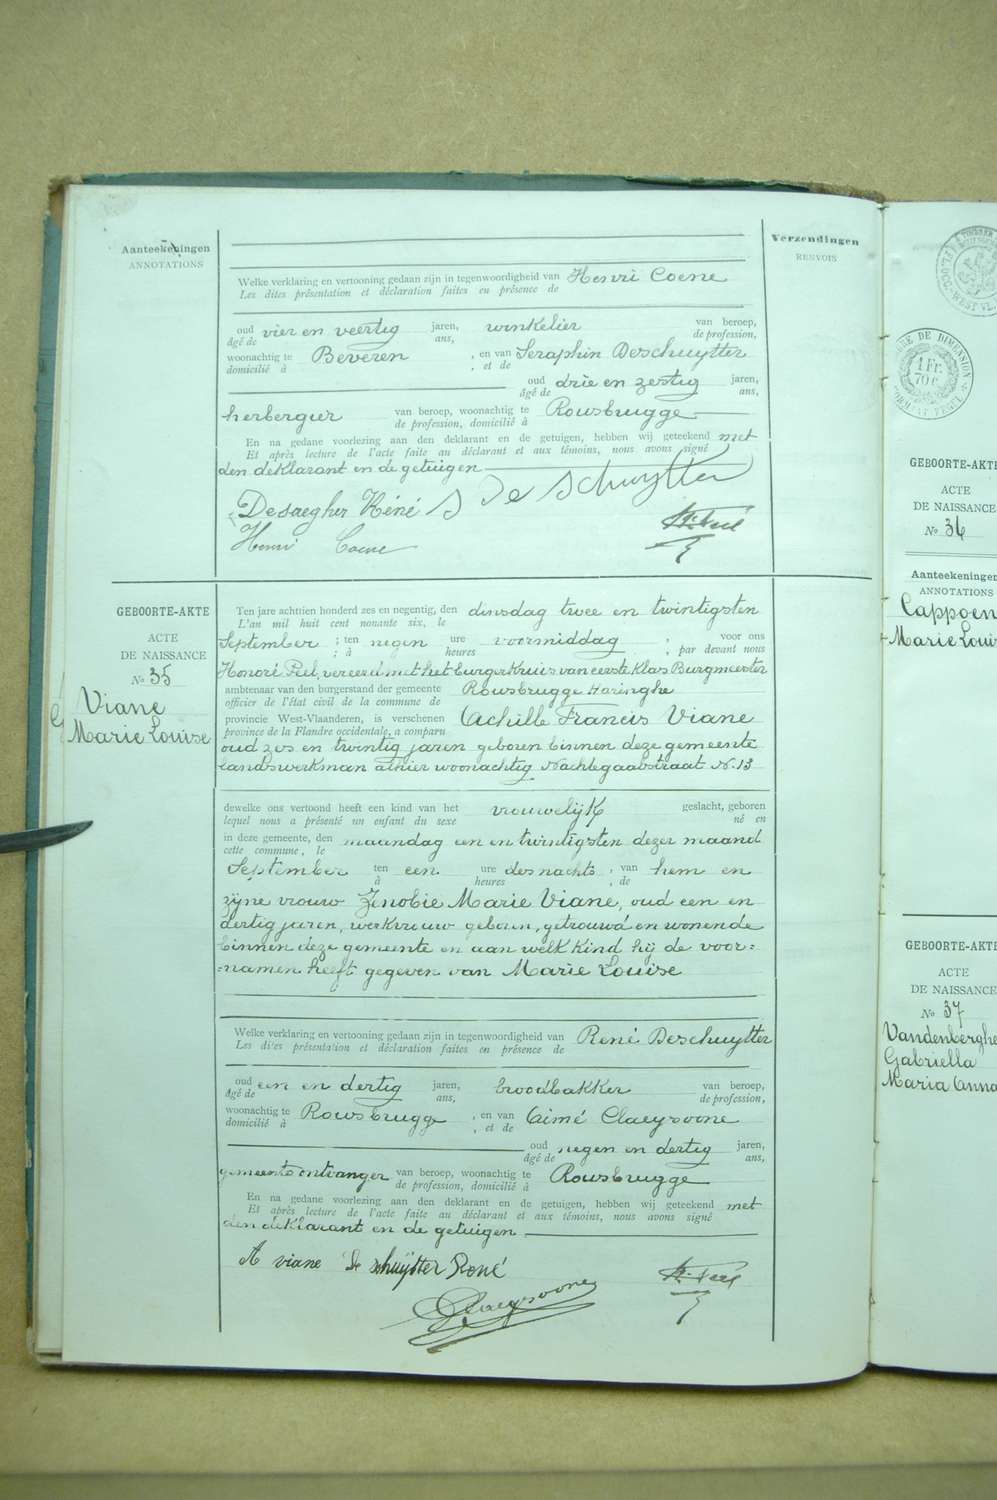 Aanteekeningen
ANNOTATIONS
Verzendingen
RENVOIS
Welke verklaring en vertooning gedaan zijn in tegenwoordigheid van Henri Coene
Les dites présentation et déclaration faites en présence de
oud vier en veertig jaren, winkelier van beroep,
âgé de ans, de profession,
woonachtig te Beveren , en van Seraphin Deschuytter
domicilié à , et de
oud drie en zestig jaren,
âgé de ans,
herbergier van beroep, woonachtig te Rousbrugge
de profession, domicilié à
En na gedane voorlezing aan den deklarant en de getuigen, hebben wij geteekend met
Et après lecture de l'acte faite au déclarant et aux témoins, nous avons signé
den deklarant en de getuigen
Desaegher Réné S DeSchuytter
Henri Coene H. Peel
GEBOORTE-AKTE
ACTE
DE NAISSANCE
No 35
Viane
Marie Louise
Ten jare achttien honderd zes en negentig, den dinsdag twee en twintigsten
L'an mil huit cent nonante six, le
September ; ten negen ure voormiddag ; voor ons
; à heures , par devant nous
Honoré Peel, vereerd met het burgerkruis van eerste klas Burgmeester
ambtenaar van den burgerstand der gemeente Rousbrugge Haringhe
officier de l'état civil de la commune de
provincie West-Vlaanderen, is verschenen Achille Francis Viane
province de la Flandre occidentale, a comparu
oud zes en twintig jaren geboren binnen deze gemeente
landswerkman alhier woonachtig Nachtegaalstraat N. 13
dewelke ons vertoond heeft een kind van het vrouwelijk geslacht, geboren
lequel nous a présenté un enfant du sexe né en
in deze gemeente, den maandag een en twintigsten dezer maand
cette commune, le
September ten een ure des nachts , van hem en
à heures , de
zijne vrouw Zenobie Marie Viane, oud een en
dertig jaren, werkvrouw geboren, getrouwd en wonende
binnen deze gemeente en aan welk kind hij de voor=
=namen heeft gegeven van Marie Louise
Welke verklaring en vertooning gedaan zijn in tegenwoordigheid van René Deschuytter
Les dites présentation et déclaration faites en présence de
oud een en dertig jaren, broodbakker van beroep,
âgé de ans, de profession,
woonachtig te Rousbrugge , en van Aimé Claeysoone
domicilié à , et de
oud negen en dertig jaren,
âgé de ans,
gemeente ontvanger van beroep, woonachtig te Rousbrugge
de profession, domicilié à
En na gedane voorlezing aan den deklarant en de getuigen, hebben wij geteekend met
Et après lecture de l'acte faite au déclarant et aux témoins, nous avons signé
den deklarant en de getuigen
A viane De schuytter René H. Peel
Claeysoone
1 Fr.
70 c.
GEBOORTE-AKTE
ACTE
DE NAISSANCE
No 36
Aanteekeningen
ANNOTATIONS
Cappoen
Marie Louis
GEBOORTE-AKTE
ACTE
DE NAISSANCE
No 37
Vandenberghe
Gabriella
Maria Anna